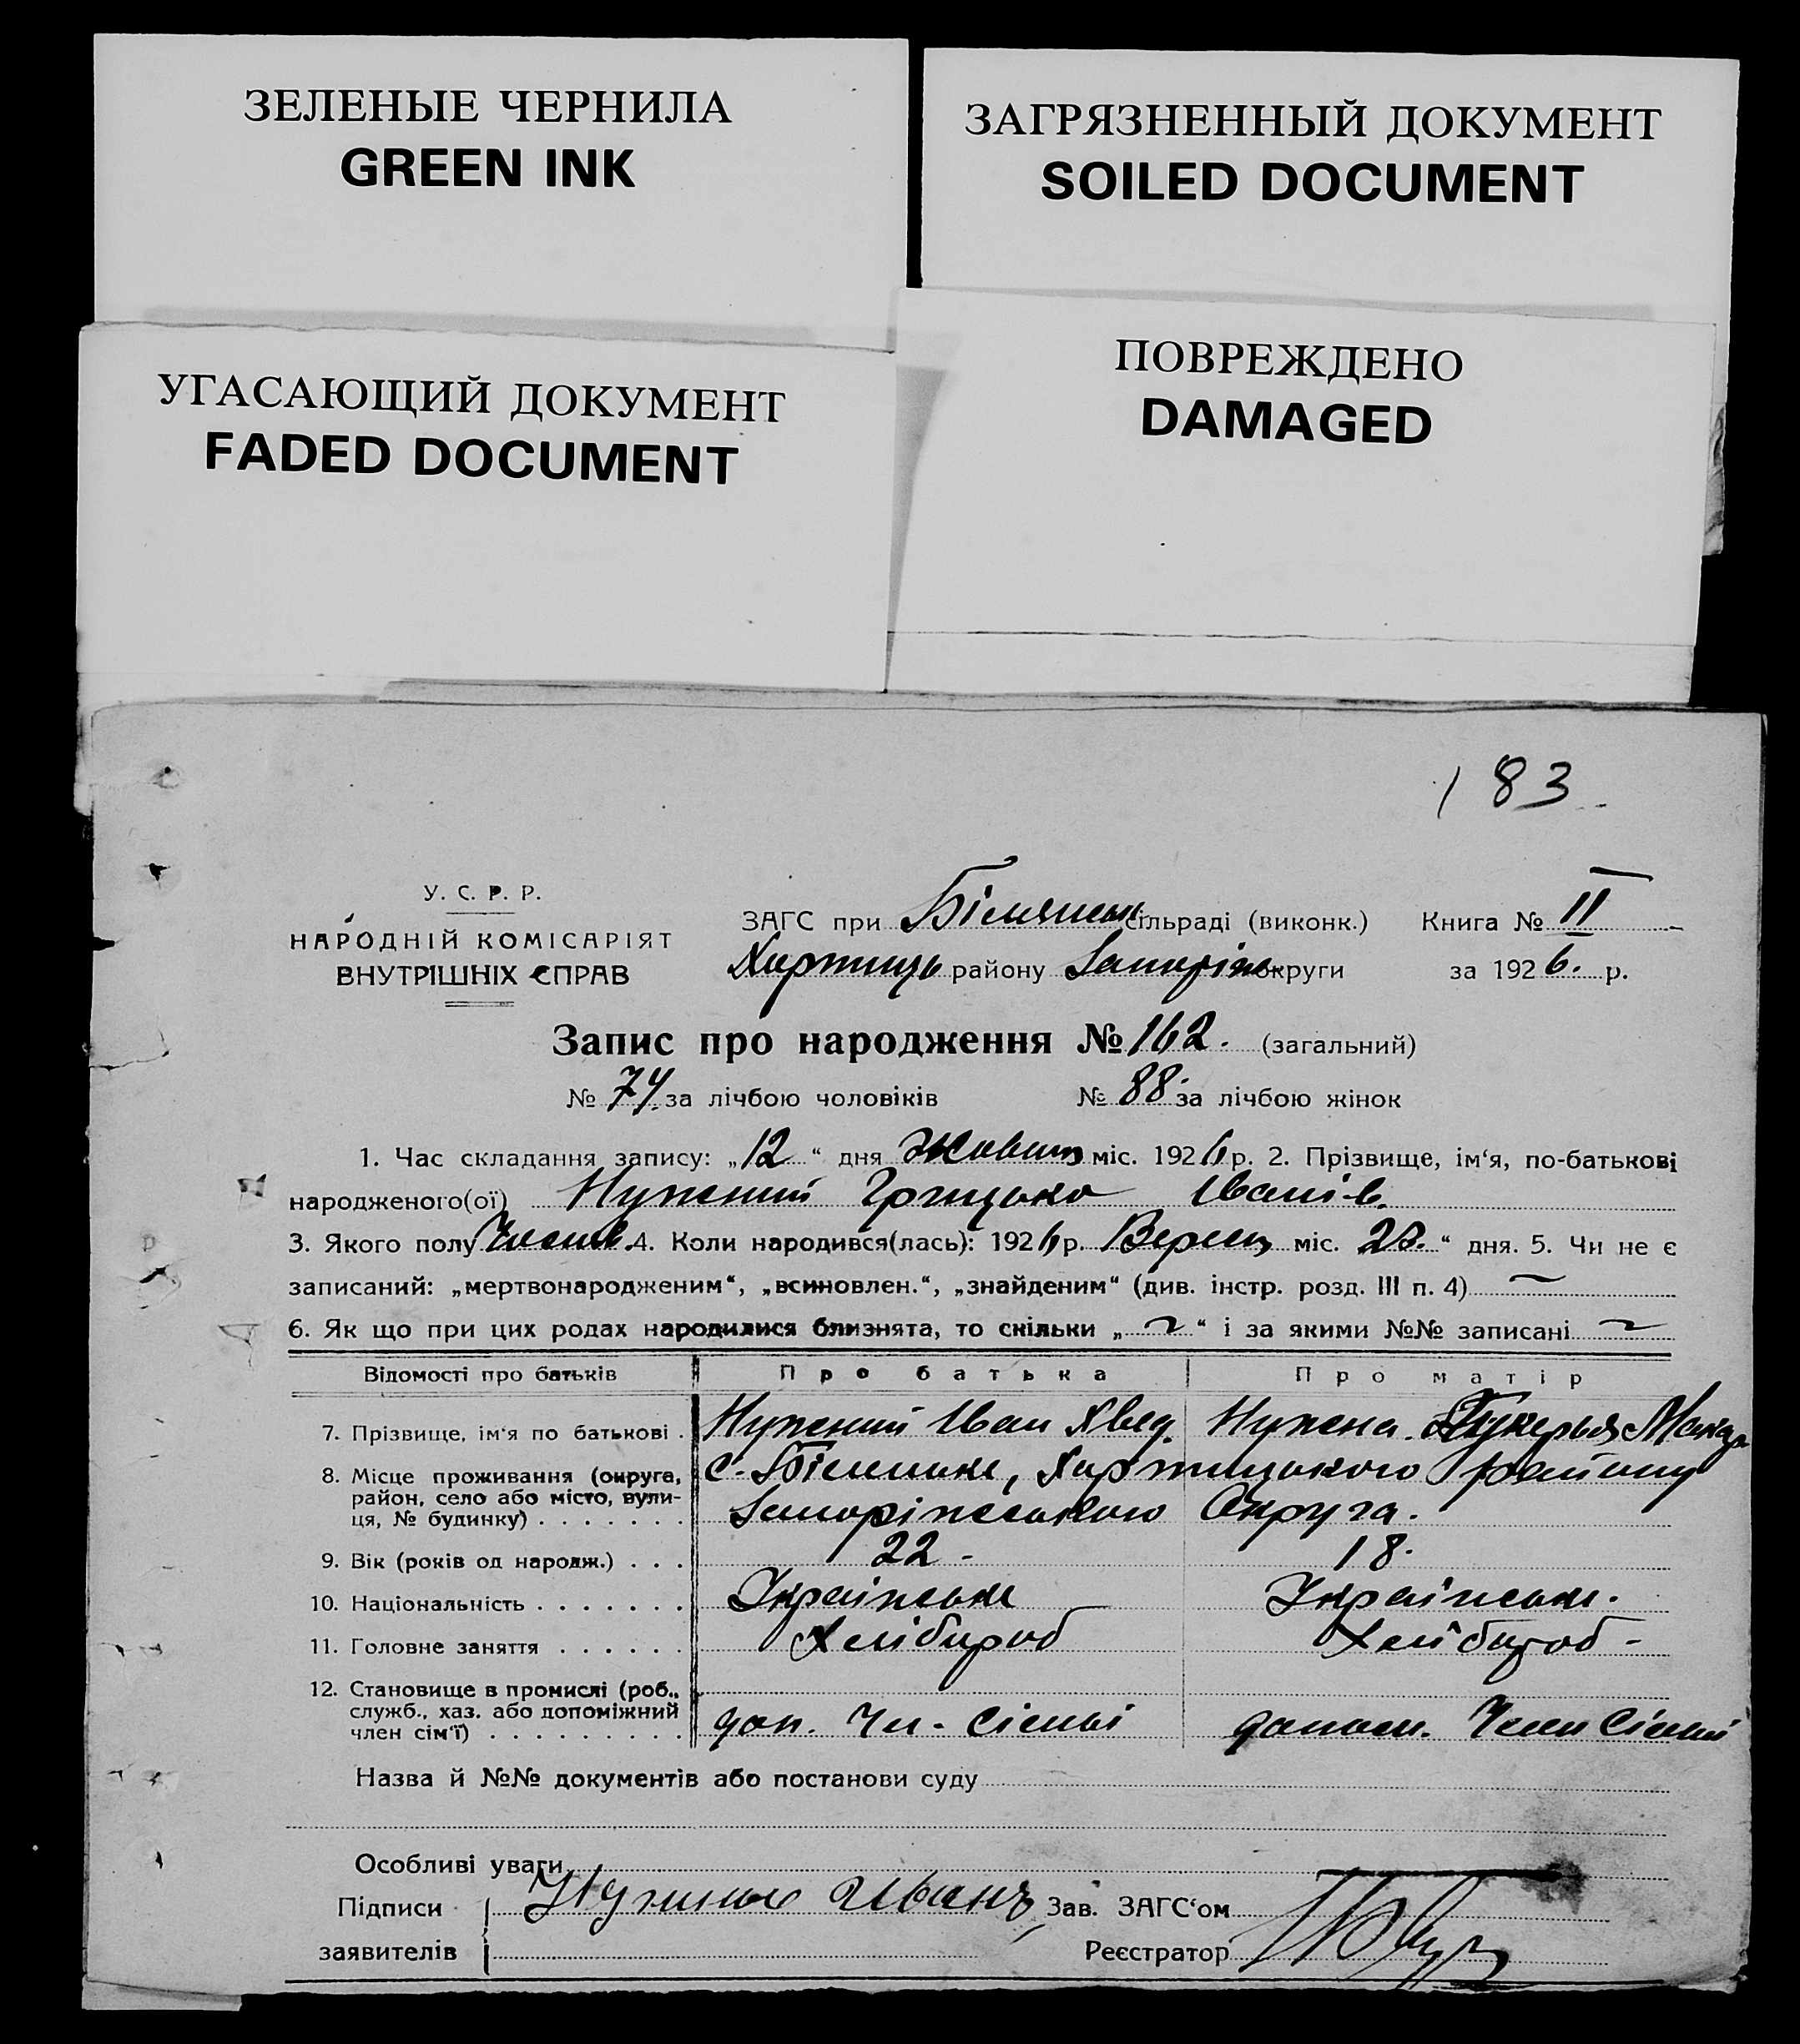 ЗЕЛЕНЫЕ ЧЕРНИЛА
GREEN INK
ЗАГРЯЗНЕННЫЙ ДОКУМЕНТ
SOILED DOCUMENT
УГАСАЮЩИЙ ДОКУМЕНТ
FADED DOCUMENT
ПОВРЕЖДЕНО
DAMAGED
183
У. С. Р. Р.
НАРОДНІЙ КОМІСАРІЯТ
ВНУТРІШНІХ СПРАВ
ЗАГС при сільраді (виконк.) Книга № II
Хортиць району Запоріж округи за 1926. р.
Запис про народження № 162. (загальний)
№ 74. за лічбою чоловіків № 88 за лічбою жінок
1. Час складання запису: „12“ дня Жовтн міс. 1926 р. 2. Прізвище, ім‘я, по-батькові
народженого(ої) Нужний Грицько Іванів.
3. Якого полу 4. Коли народився(лась): 1926 р. Вересн міс. “ дня. 5. Чи не є
записаний: „мертвонародженим“, „всиновлен.“, „знайденим“ (див. інстр. розд. III п. 4) —
6. Як що при цих родах народилися близнята, то скільки „ ~ “ і за якими №№ записані ~
Відомості про батьків Про батька Про матір
7. Прізвище, ім‘я по батькові . Нужний Іван Хвед. Нужна Макар
8. Місце проживання (округа, район, село або місто, вулиця, № будинку) . . . . . . . с. Біленьке, Хортицького району
Запоріжського Округа.
9. Вік (років од народж.) . . . 22 - 18.
10. Національність . . . . . . . Українське Українське.
11. Головне заняття . . . . . . Хлібороб Хлібороб -
12. Становище в промислі (роб., служб., хаз. або допоміжний член сім‘ї) . . . . . . . . . доп. Чл. сіемі допом. Член Сіемі
Назва й №№ документів або постанови суду
Особливі уваги
Підписи Иванъ Зав. ЗАГС‘ом
заявителів Реєстратор